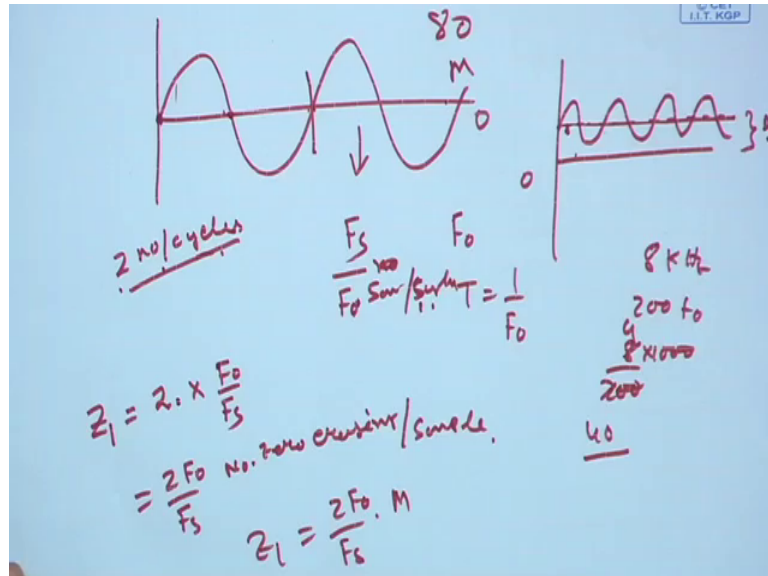 © CET
I.I.T. KGP
80
M
0
0
2 no/cycles
Fs
F0
Fs/F0 Sam/
T = 1/F0
8 KHz
200 f0
8×1000
200
40
Z1 = 2. × F0/Fs
= 2F0/Fs No. zero crossing/sample.
Z1 = 2F0/Fs . M